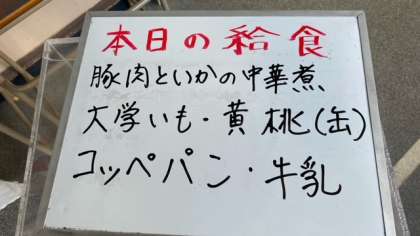 本日の給食
豚肉といかの中華煮
大学いも・黄桃(缶)
コッペパン・牛乳